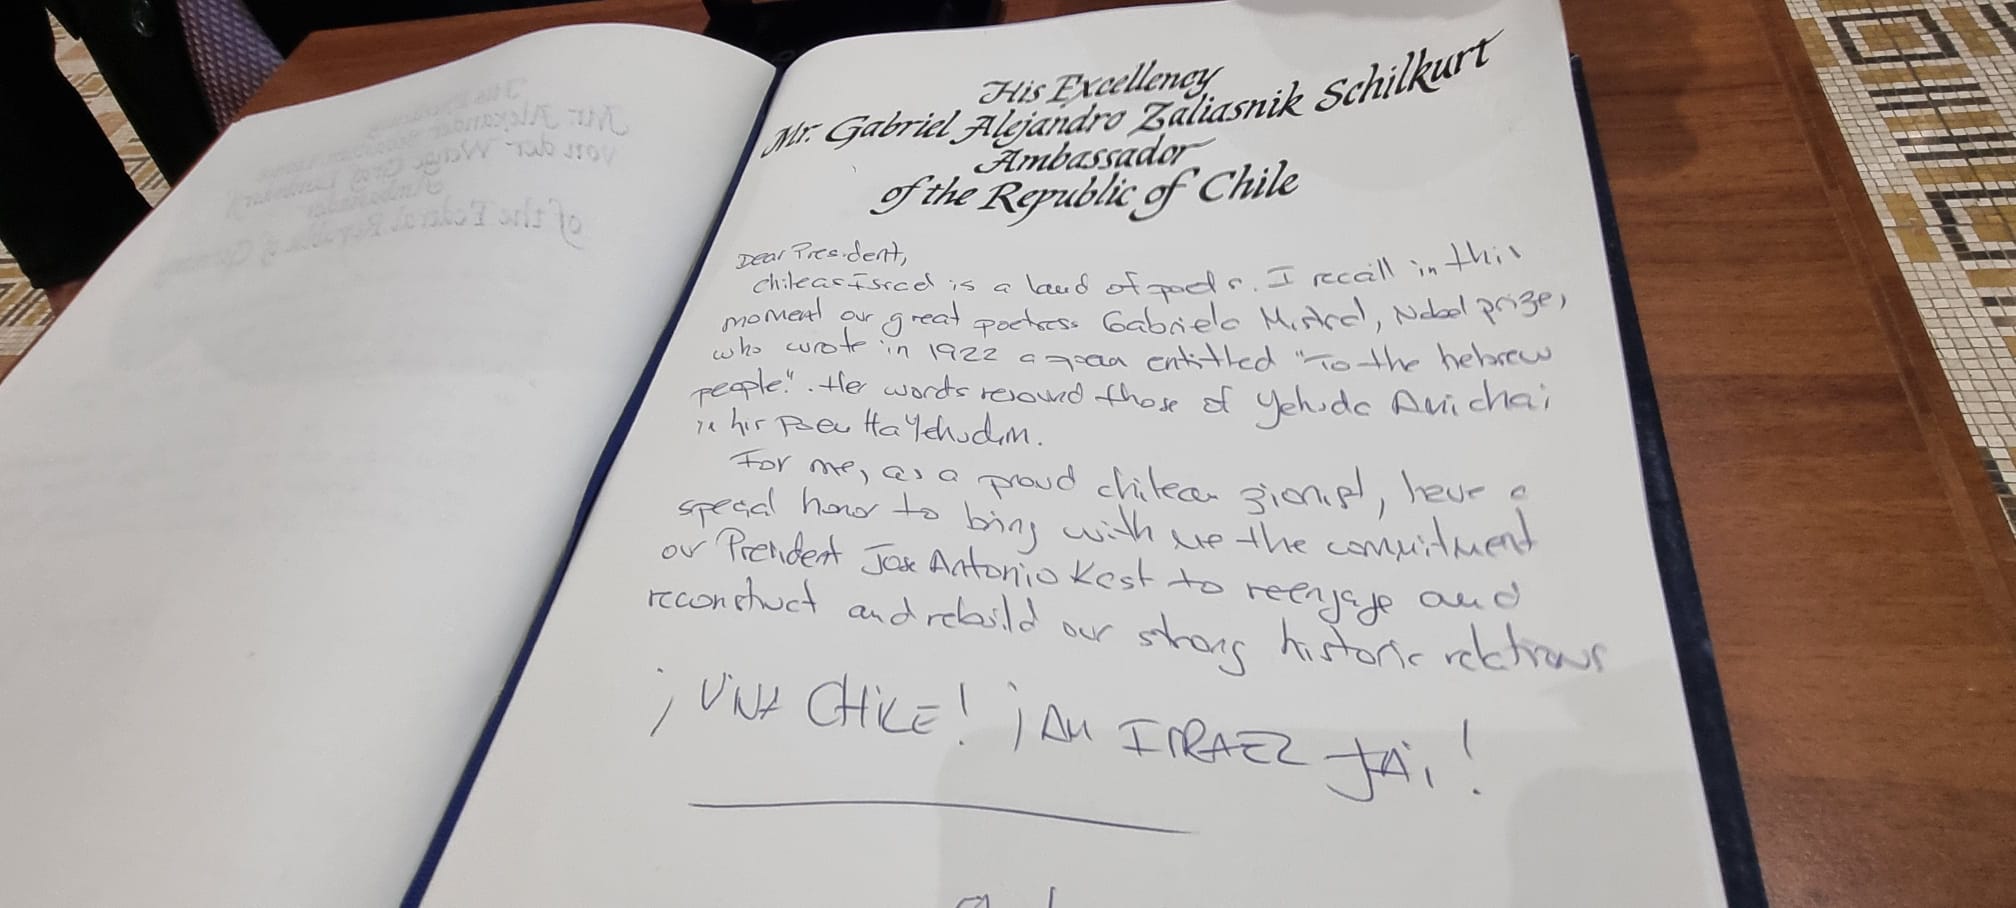 His Excellency
Mr. Gabriel Alejandro Zaliasnik Schilkurt
Ambassador
of the Republic of Chile
Dear President,
Chile as Israel is a land of poets. I recall in this
moment our great poetess Gabriela Mistral, Nobel prize,
who wrote in 1922 a poem entitled "To the hebrew
people". Her words resound those of Yehuda Amichai
in his Poem HaYehudim.
For me, as a proud chilean zionist, have a
special honor to bring with me the commitment
our President Jose Antonio Kast to reengage and
reconstruct and rebuild our strong historic relations
¡VIVA CHILE! ¡AM ISRAEL JAI!
Mr. Alexander
von der
Ambassador
of the Federal Republic of Germany